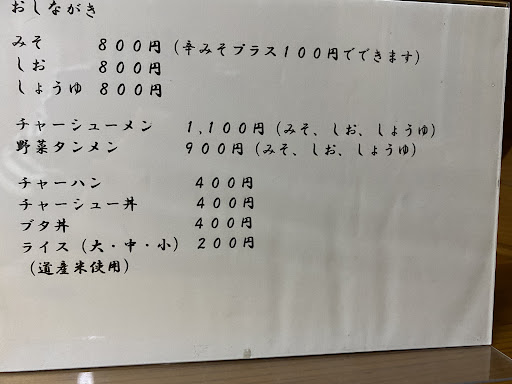 おしながき
みそ　８００円（辛みそプラス１００円でできます）
しお　８００円
しょうゆ　８００円
チャーシューメン　１,１００円（みそ、しお、しょうゆ）
野菜タンメン　９００円（みそ、しお、しょうゆ）
チャーハン　４００円
チャーシュー丼　４００円
ブタ丼　４００円
ライス（大・中・小）２００円
（道産米使用）